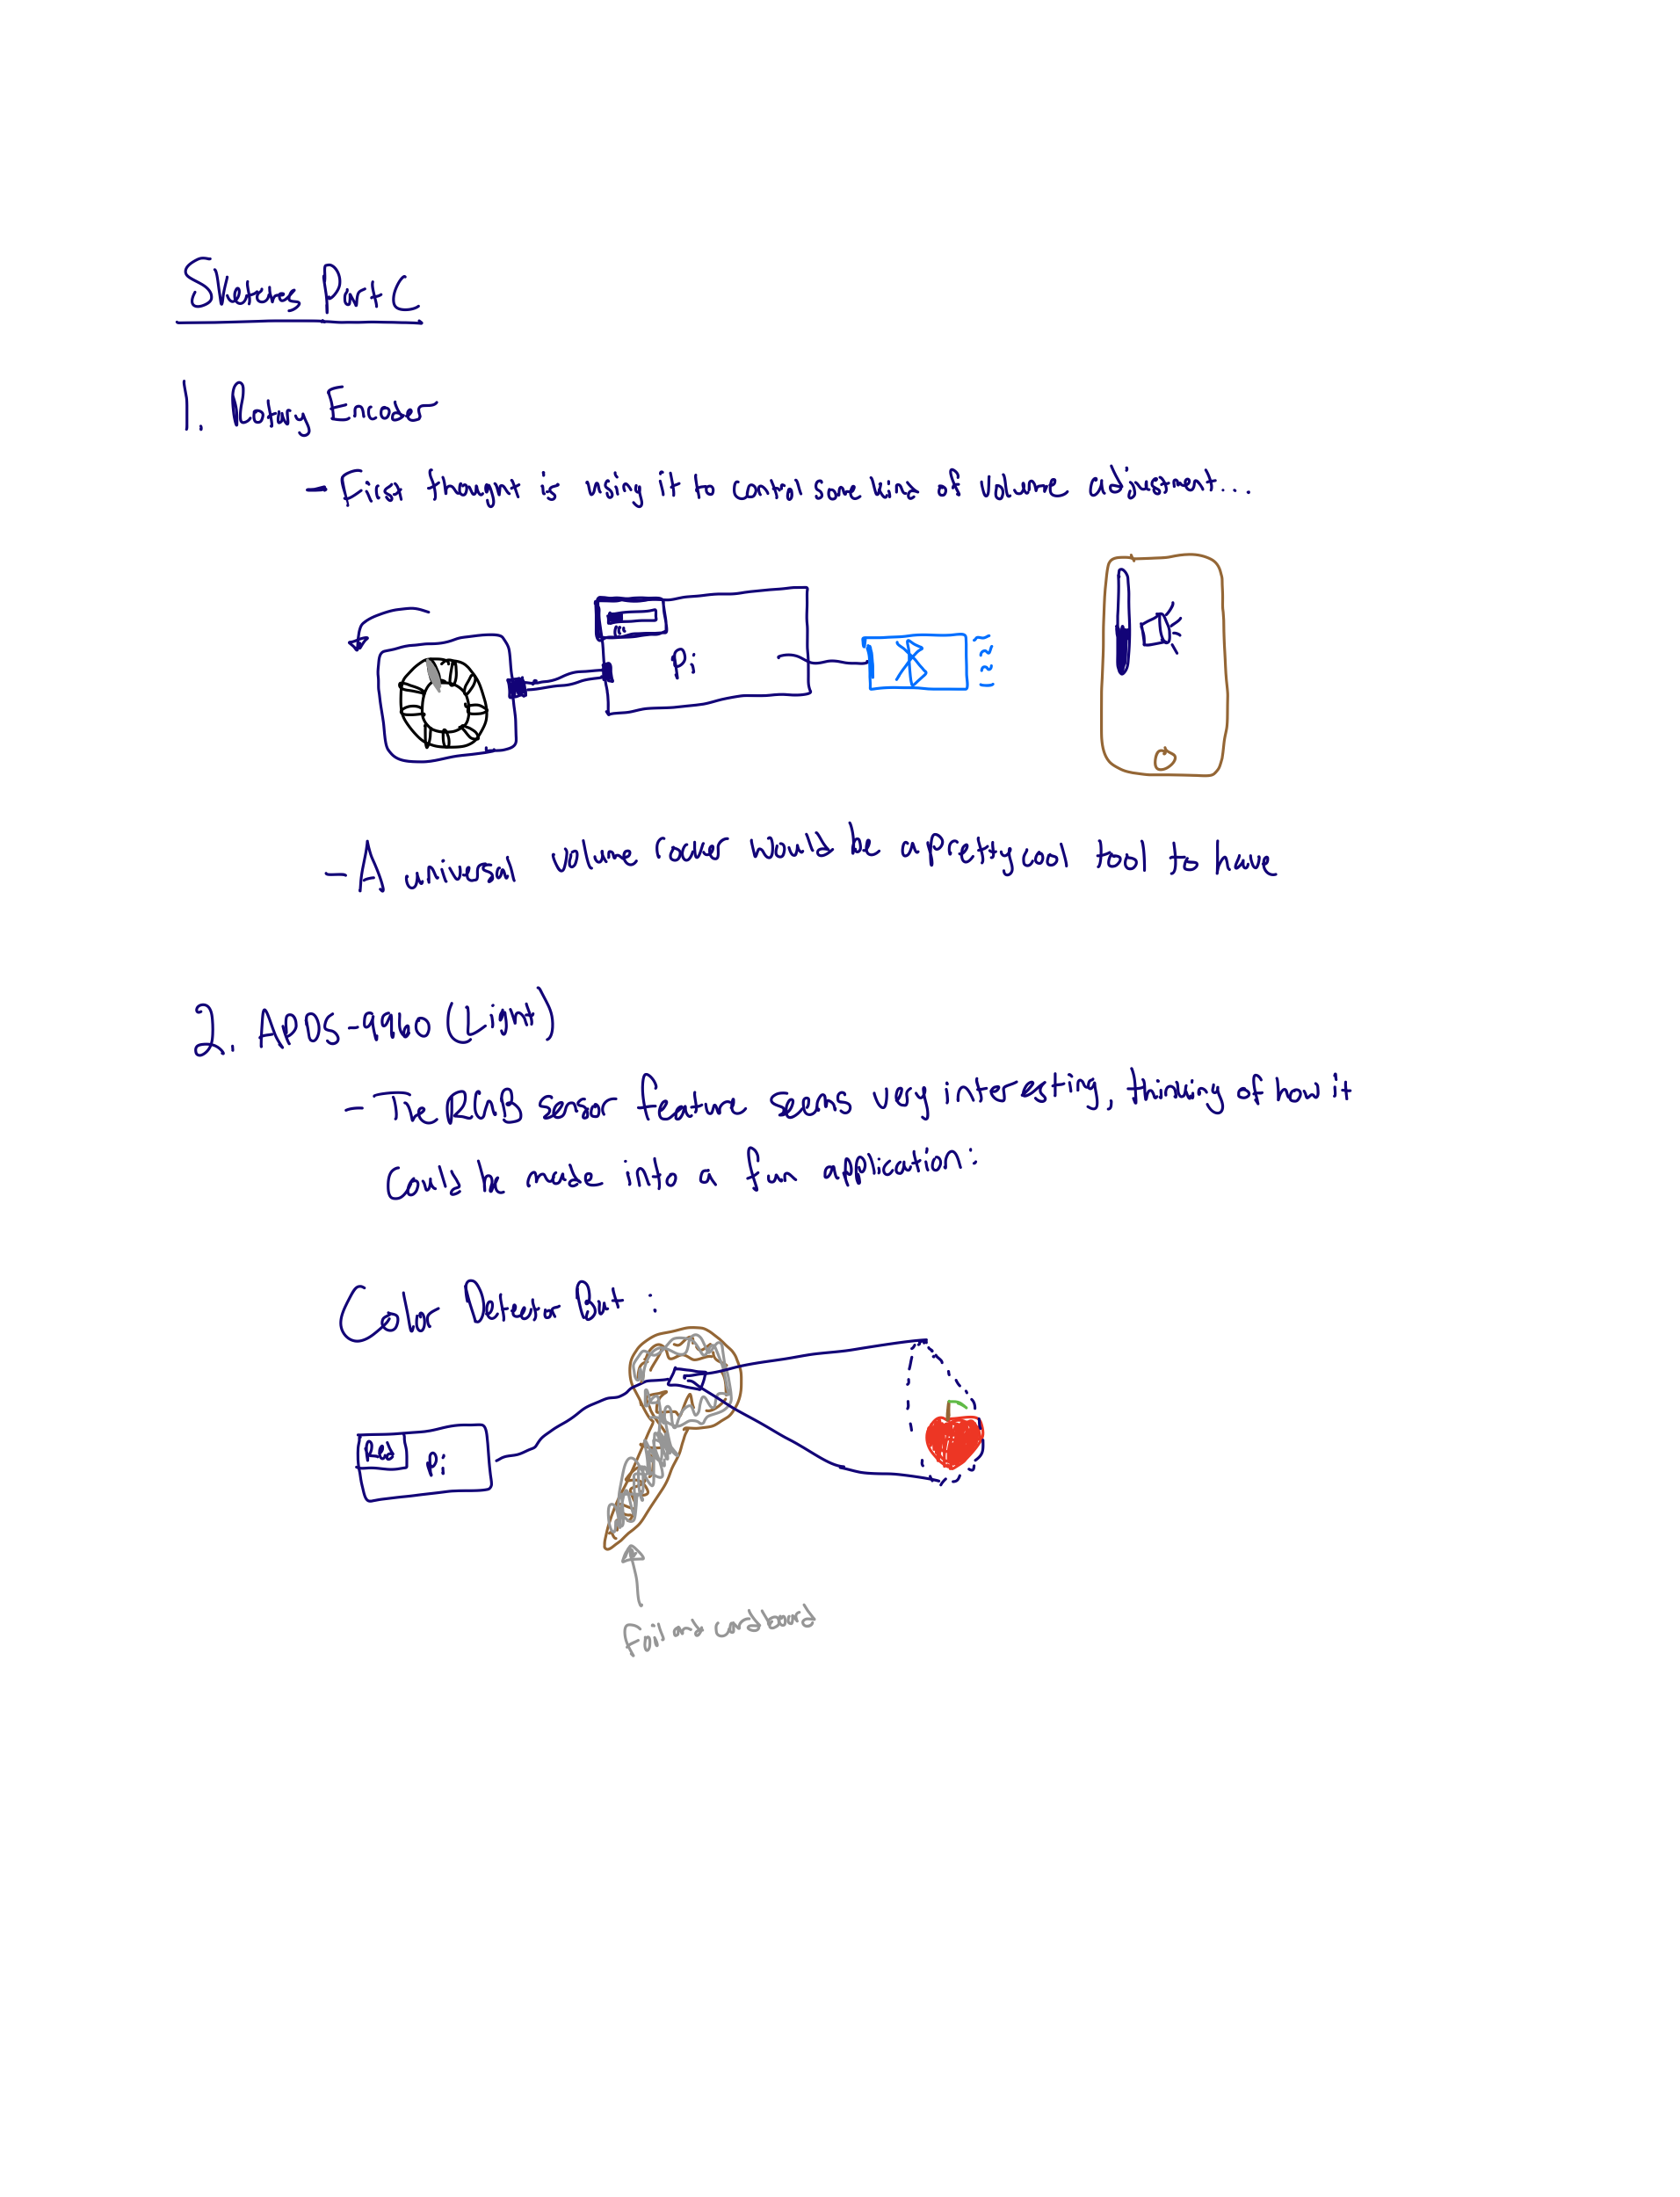 Sketches Part C
1. Rotary Encoder
- First thought is using it to control some kind of volume adjustment...
Pi
- A universal volume rocker would be a pretty cool tool to have
2. APDS-9960 (Light)
- The RGB sensor feature seems very interesting, thinking of how it
could be made into a fun application:
Color Detector But :
Red Pi
foil and cardboard